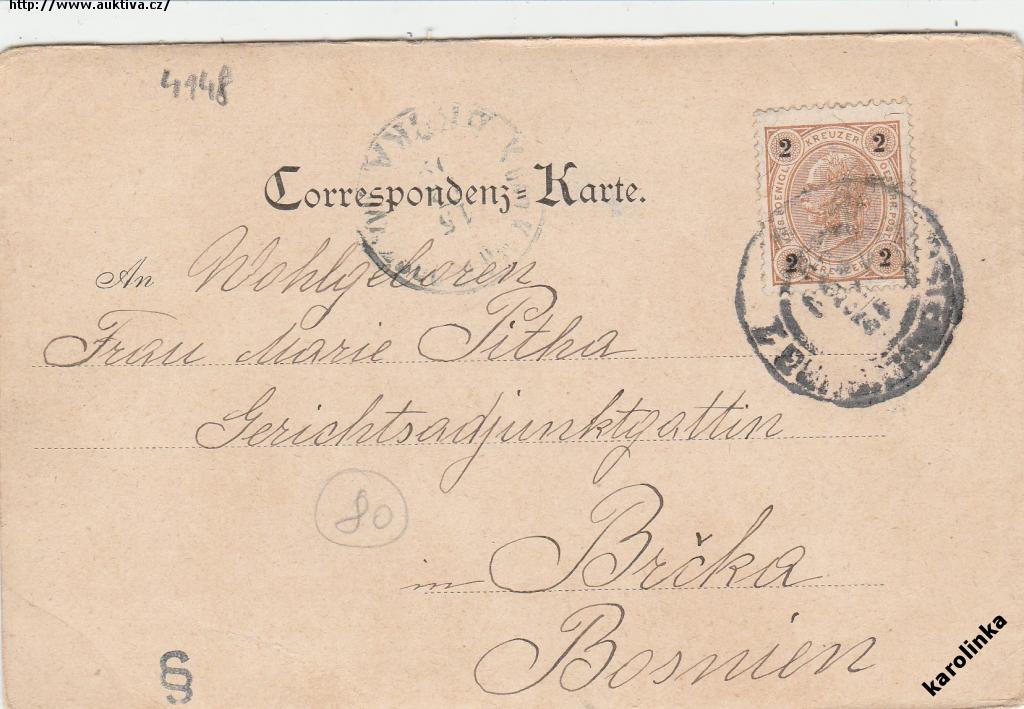 http://www.auktiva.cz/
4148
Correspondenz=Karte.
2 KREUZER 2
2 2
An Wohlgeboren
Frau Marie Pitha
Gerichtsadjunktgattin
80
in Brčka
Bosnien
§
karolinka